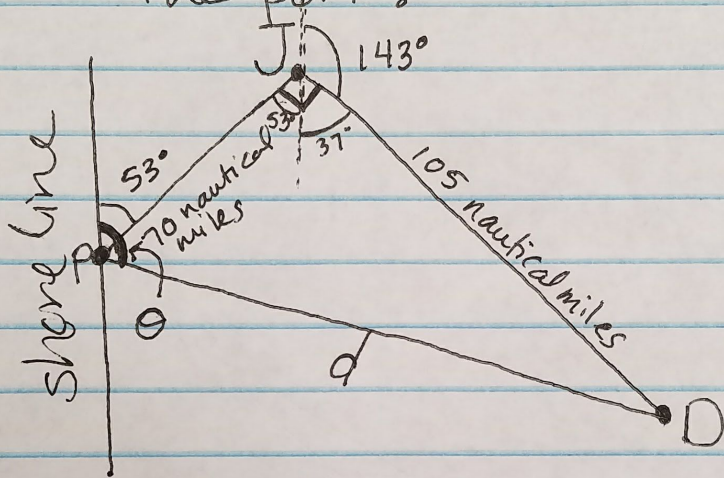 the port.
J
143°
53°
37°
53°
70 nautical
miles
105 nautical miles
shore line
P
θ
d
D